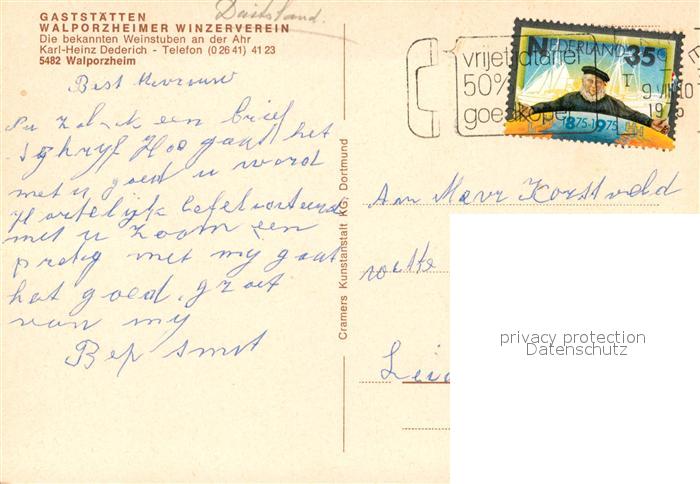 Duitsland.
GASTSTÄTTEN
WALPORZHEIMER WINZERVEREIN
Die bekannten Weinstuben an der Ahr
Karl-Heinz Dederich - Telefon (0 26 41) 41 23
5482 Walporzheim
Best Mevrouw
Nu zal ik een brief
schryf Hoe gaat het
met u goed u word
Hartelijk gefeliciteerd
met u zoon een
prettig met my gaat
hat goed. groet
van my
Bep Smit
Cramers Kunstanstalt KG, Dortmund
NEDERLAND 35c
1875-1975
vrijetijdtarief
50%
goedkoper
1975
Aan Mevr Korstveld
Lei
privacy protection
Datenschutz